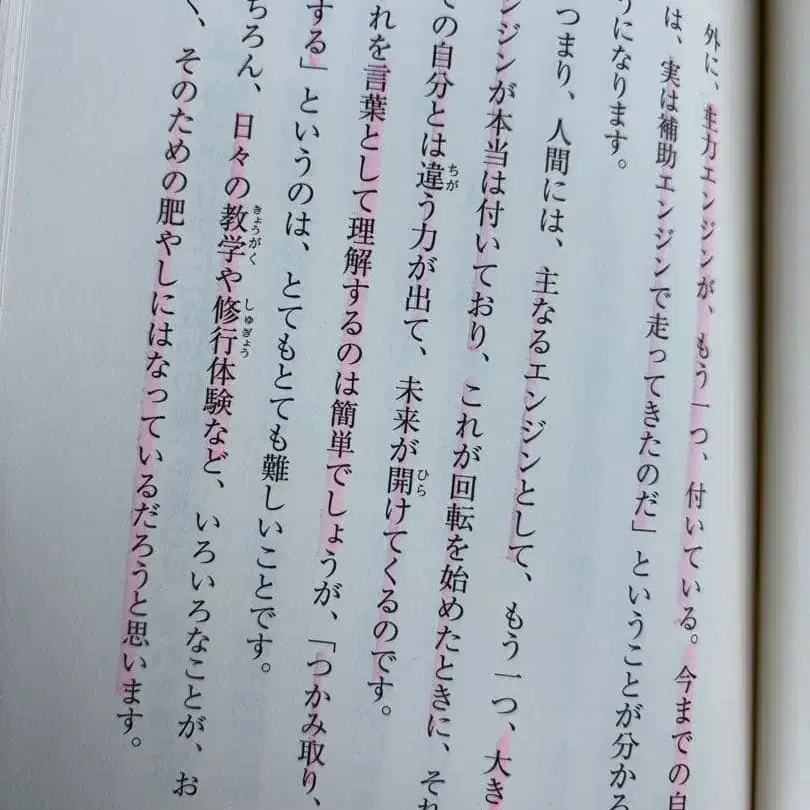 外に、主力エンジンが、もう一つ、付いている。今までの自
は、実は補助エンジンで走ってきたのだ」ということが分かる
うになります。
つまり、人間には、主なるエンジンとして、もう一つ、大き
ンジンが本当は付いており、これが回転を始めたときに、それ
での自分とは違う力が出て、未来が開けてくるのです。
れを言葉として理解するのは簡単でしょうが、「つかみ取り、
する」というのは、とてもとても難しいことです。
ちろん、日々の教学や修行体験など、いろいろなことが、お
く、そのための肥やしにはなっているだろうと思います。